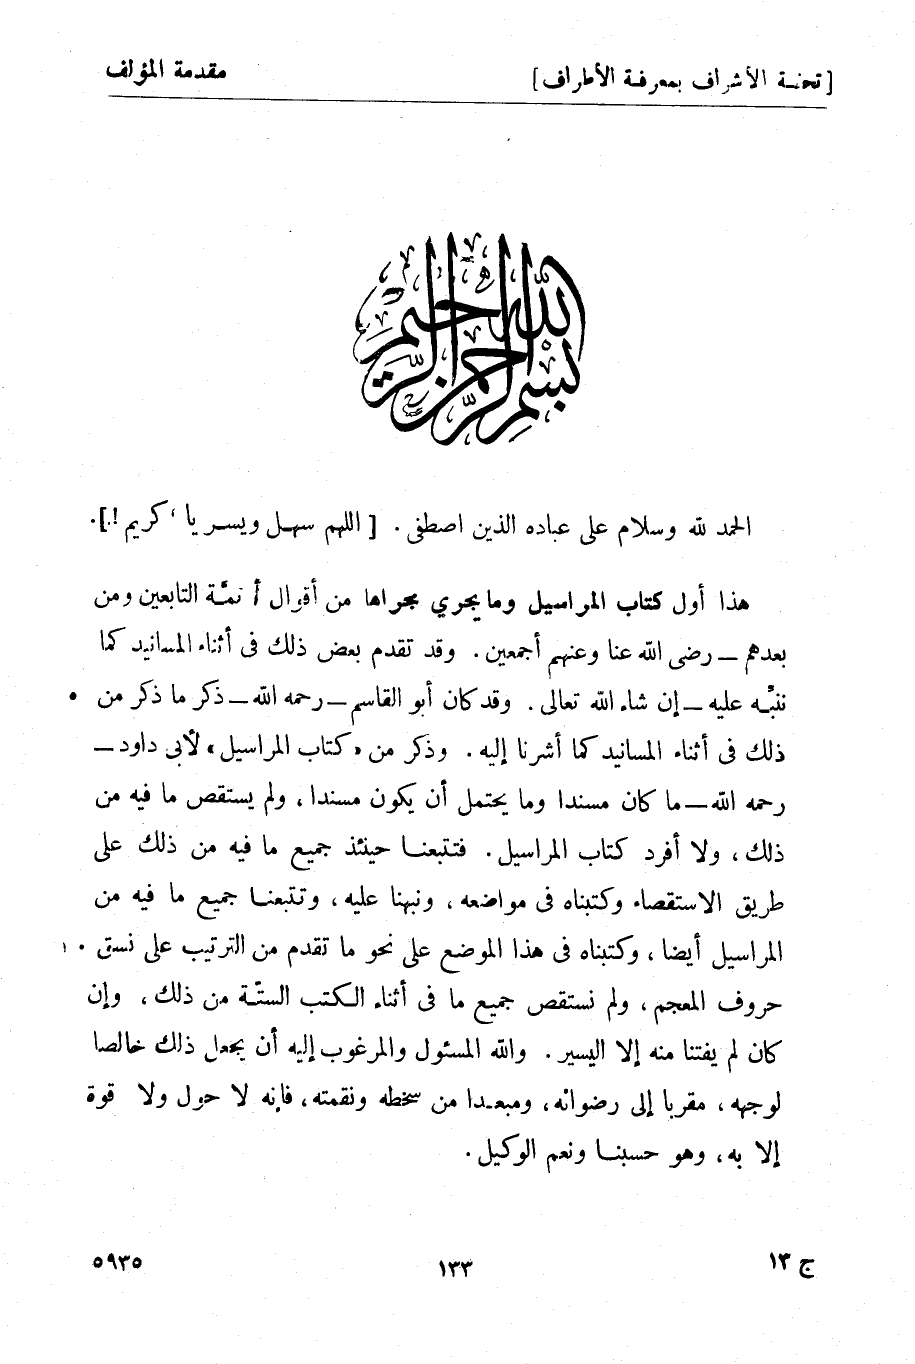 [تحفـة الأشراف بمعرفـة الأطراف]
مقدمة المؤلف
بسم الله الرحمن الرحيم
الحمد لله وسلام على عباده الذين اصطفى . [ اللهم سهـل ويسـر يا كريم !].
هذا أول كتاب المراسيل وما يجري مجراها من أقوال أئمّة التابعين ومن
بعدهم ــ رضى الله عنا وعنهم أجمعين . وقد تقدم بعض ذلك فى أثناء المسانيد كما
ننبّـه عليه ــ إن شاء الله تعالى . وقد كان أبو القاسم ــ رحمه الله ــ ذكر ما ذكر من ٥
ذلك فى أثناء المسانيد كما أشرنا إليه . وذكر من «كتاب المراسيل» لأبى داود ــ
رحمه الله ــ ما كان مسندا وما يحتمل أن يكون مسندا ، ولم يستقص ما فيه من
ذلك ، ولا أفرد كتاب المراسيل . فتتبعنـا حينئذ جميـع ما فيه من ذلك على
طريق الاستقصاء وكتبناه فى مواضعه ، ونبهنا عليه ، وتتبعنـا جميـع ما فيه من
المراسيل أيضا ، وكتبناه فى هذا الموضع على نحو ما تقدم من الترتيب على نسق ١٠
حروف المعجم ، ولم نستقص جميع ما فى أثناء الكتب الستّـة من ذلك ، وإن
كان لم يفتنا منه إلا اليسير . والله المسئول والمرغوب إليه أن يجعل ذلك خالصا
لوجهه ، مقربا إلى رضوانه ، ومبعـدا من سخطه ونقمته ، فإنه لا حول ولا قوة
إلا به ، وهو حسبنـا ونعم الوكيل .
ج ١٣
١٣٣
٥٩٣٥